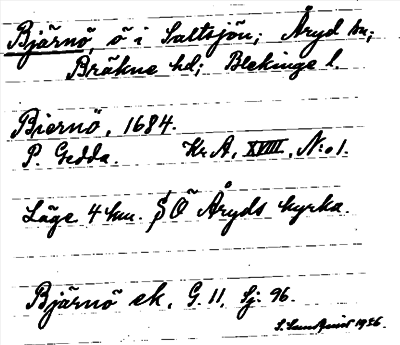 Bjärnö, ö i Saltsjön; Åryd sn;
Bräkne hd; Blekinge l.
Biernö, 1684.
P. Gedda. Kr. A, XVIII, N:o 1.
Läge 4 km. SO Åryds kyrka.
Bjärnö ek. G. 11, Sj. 96.
1926.